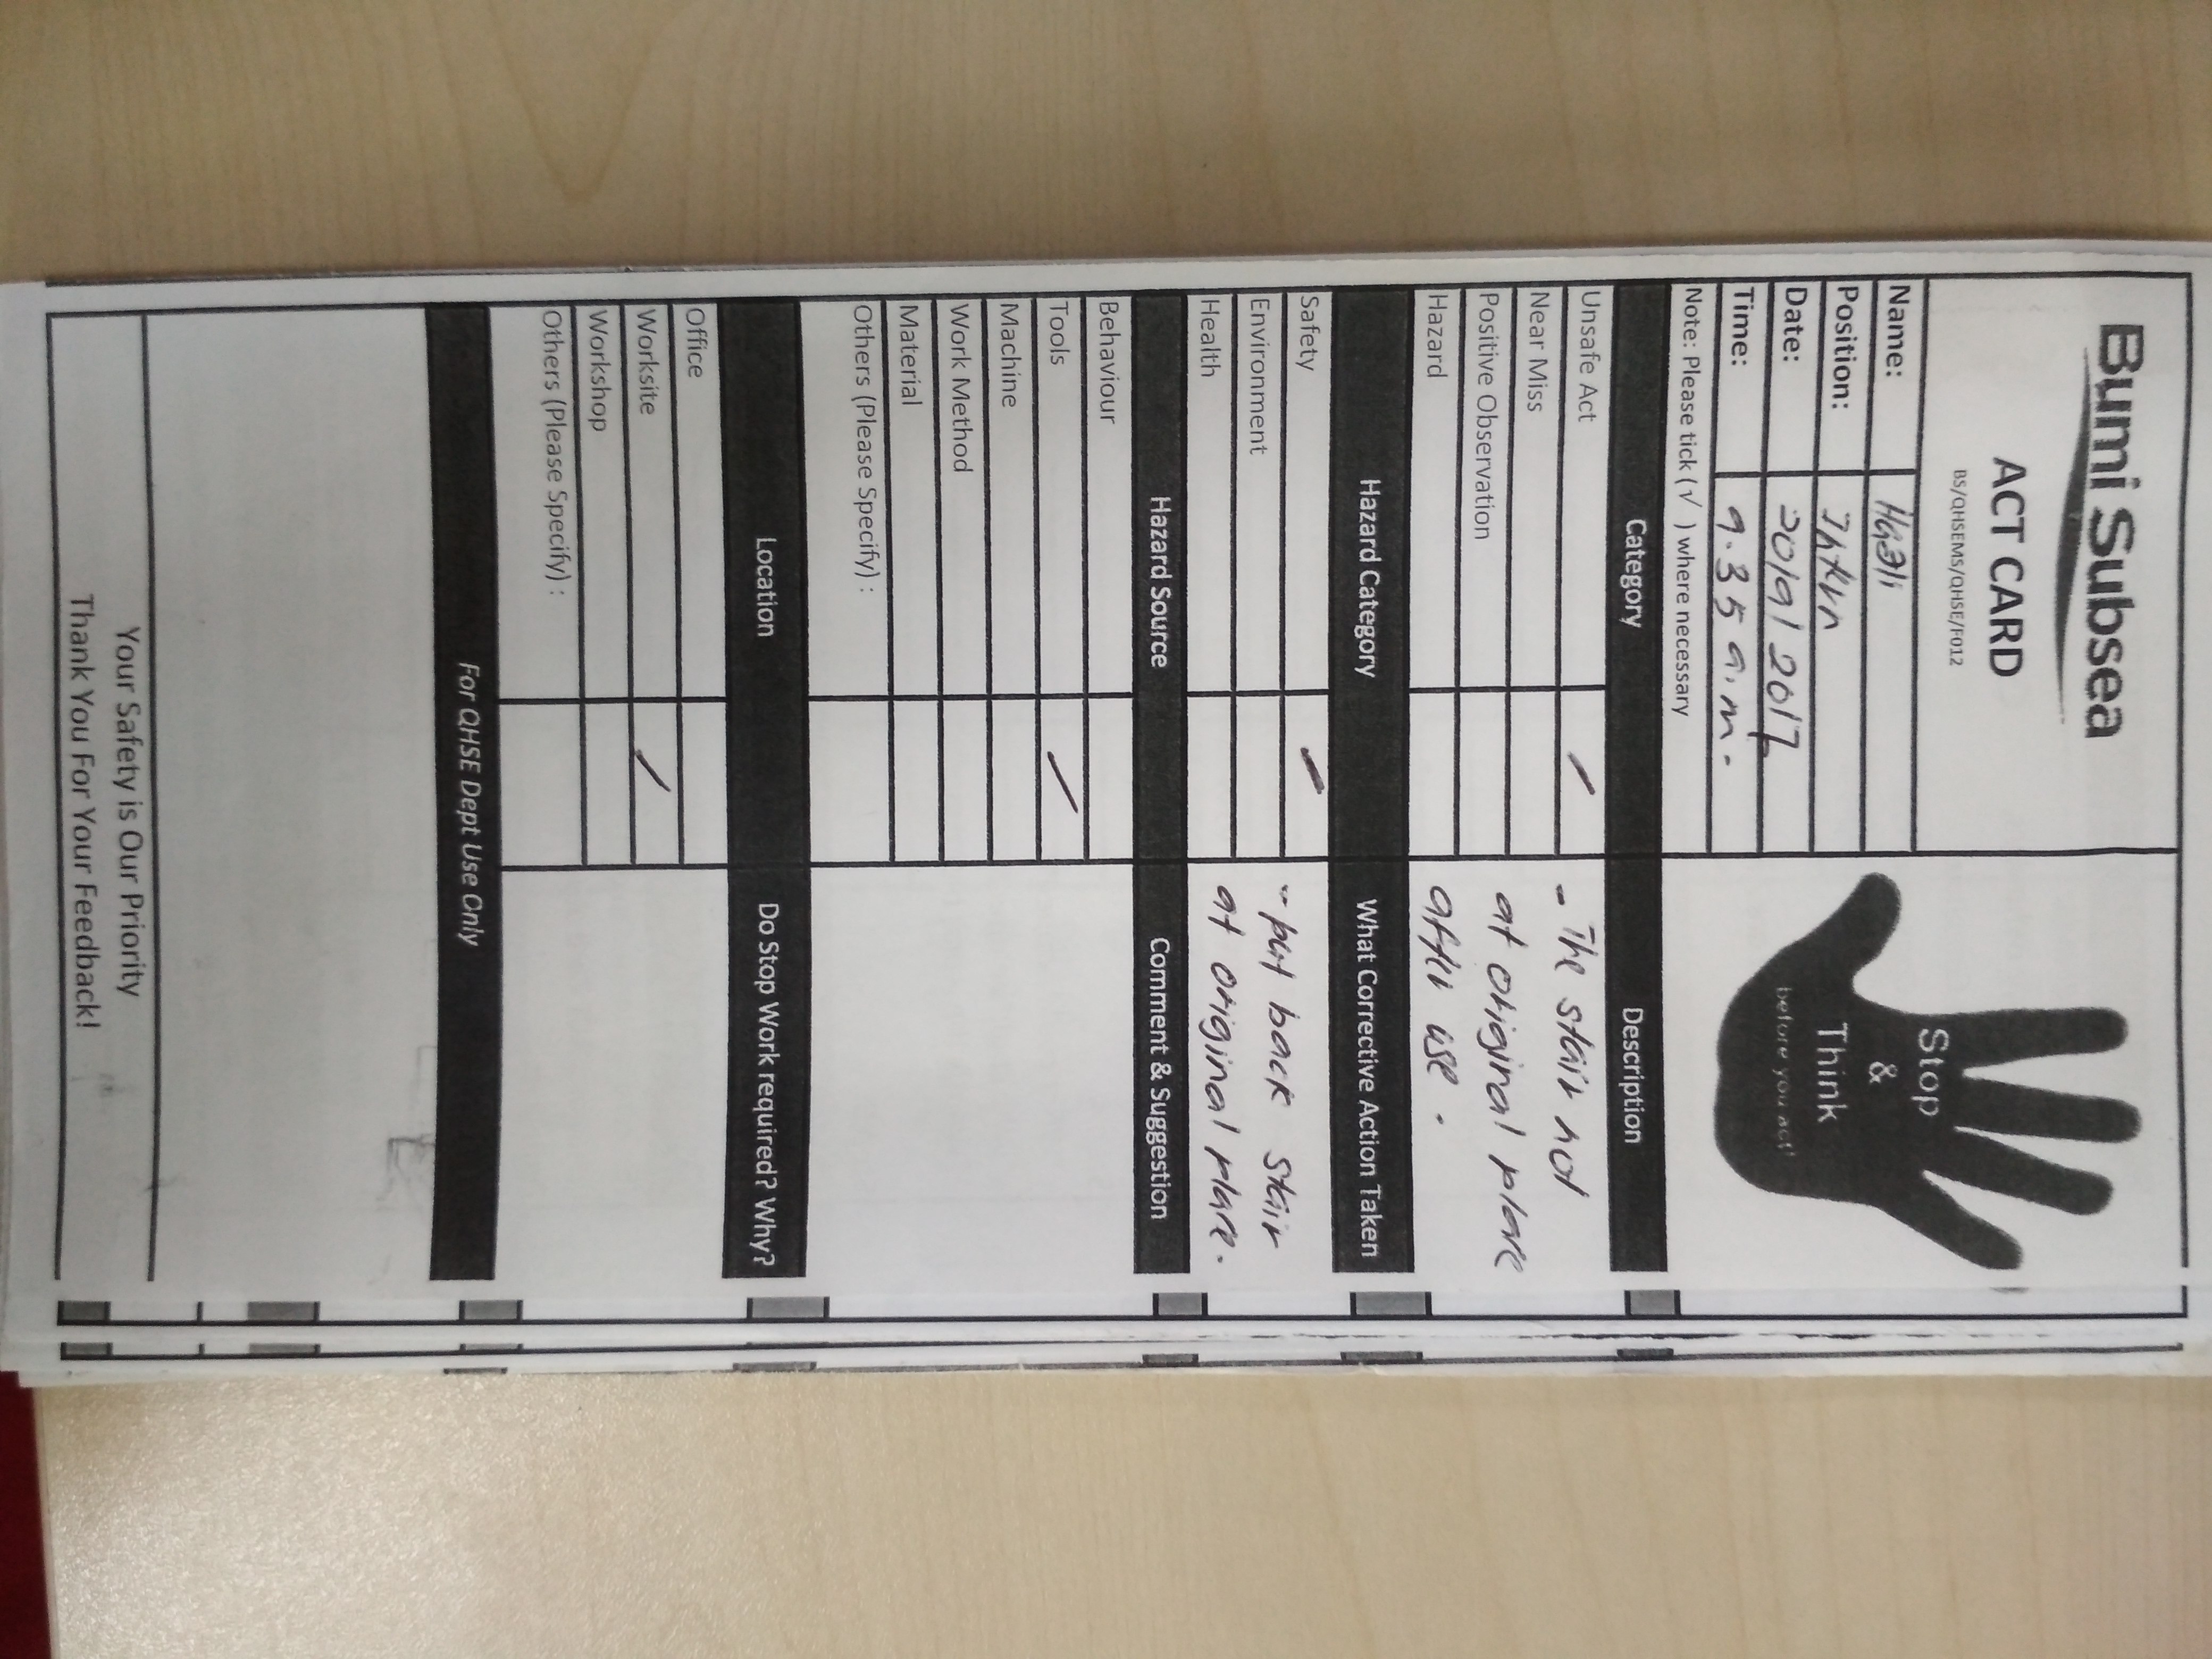 Bumi Subsea
ACT CARD
BS/QHSEMS/QHSE/F012
Stop
&
Think
before you act!
Name:
Position:
Date: 20/9/2017
Time: 9.35 a.m.
Note: Please tick (√ ) where necessary
Category
Description
Unsafe Act /
Near Miss
Positive Observation
Hazard
- The stair not
at original place
after use.
Hazard Category
What Corrective Action Taken
Safety /
Environment
Health
- put back stair
at original place.
Hazard Source
Comment & Suggestion
Behaviour
Tools /
Machine
Work Method
Material
Others (Please Specify) :
Location
Do Stop Work required? Why?
Office
Worksite /
Workshop
Others (Please Specify) :
For QHSE Dept Use Only
Your Safety is Our Priority
Thank You For Your Feedback!